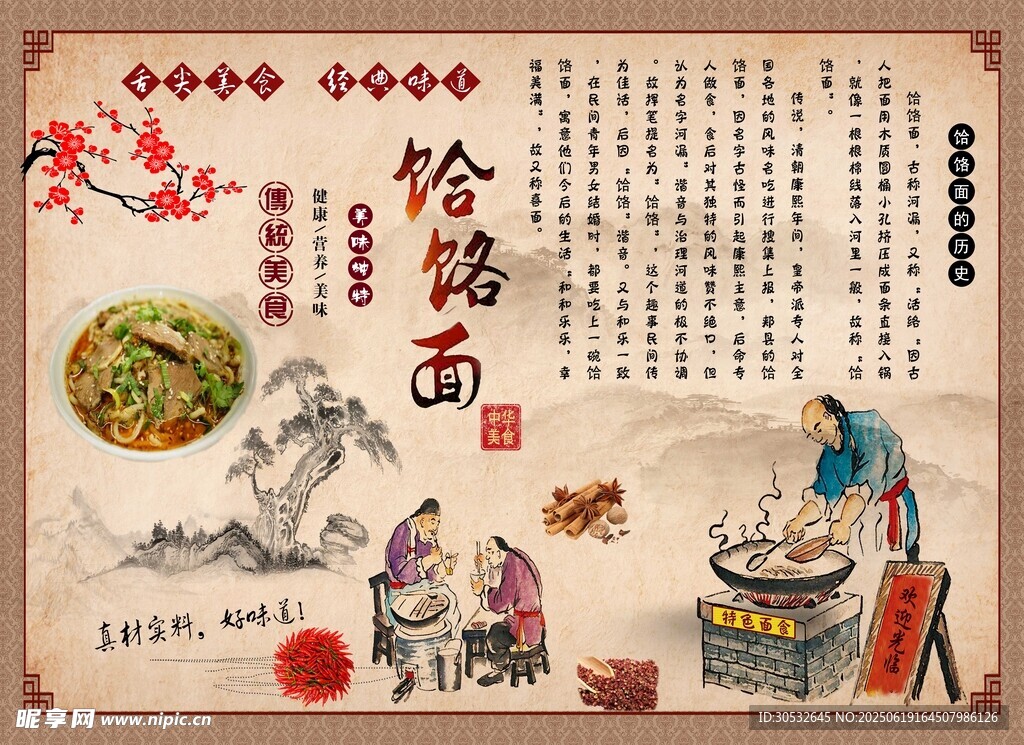 舌尖美食 经典味道
饸饹面
中华美食
美味独特
健康/营养/美味
傳統美食
饸饹面的历史
饸饹面，古称河漏，又称“活络”因古
人把面用木质圆桶小孔挤压成面条直接入锅
，就像一根根棉线落入河里一般，故称“饸
饹面”。
传说，清朝康熙年间，皇帝派专人对全
国各地的风味名吃进行搜集上报，郏县的饸
饹面，因名字古怪而引起康熙主意，后命专
人做食，食后对其独特的风味赞不绝口，但
认为名字河漏“谐音与治理河道的极不协调
。故挥笔提名为“饸饹”，这个趣事民间传
为佳话，后因“饸饹”谐音。又与和乐一致
，在民间青年男女结婚时，都要吃上一碗饸
饹面，寓意他们今后的生活“和和乐乐，幸
福美满”，故又称喜面。
真材实料，好味道！
特色面食
欢迎光临
昵享网 www.nipic.cn
ID:30532645 NO:20250619164507986126